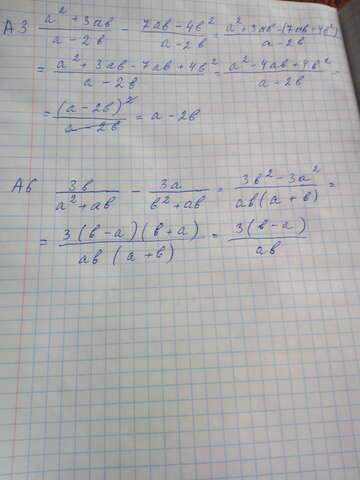 А3 (a² + 3ab)/(a - 2b) - (7ab - 4b²)/(a - 2b) = (a² + 3ab - (7ab - 4b²))/(a - 2b)
= (a² + 3ab - 7ab + 4b²)/(a - 2b) = (a² - 4ab + 4b²)/(a - 2b) =
= (a - 2b)²/(a - 2b) = a - 2b
А6 3b/(a² + ab) - 3a/(b² + ab) = (3b² - 3a²)/(ab(a + b)) =
= (3(b - a)(b + a))/(ab(a + b)) = (3(b - a))/(ab)